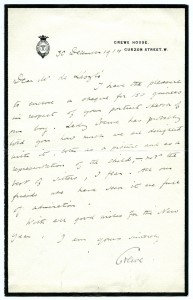 CREWE HOUSE,
CURZON STREET, W.
30 December 1914
Dear Mr de László
I have the pleasure
to enclose a cheque for 150 guineas
in respect of your portrait sketch of
our boy. Lady Crewe has probably
told you how much we are delighted
with it, both as a picture and as a
representation of the child, not the
best of sitters, I fear. All our
friends who have seen it are full
of admiration.
With all good wishes for the New
Year. I am yours sincerely
Crewe